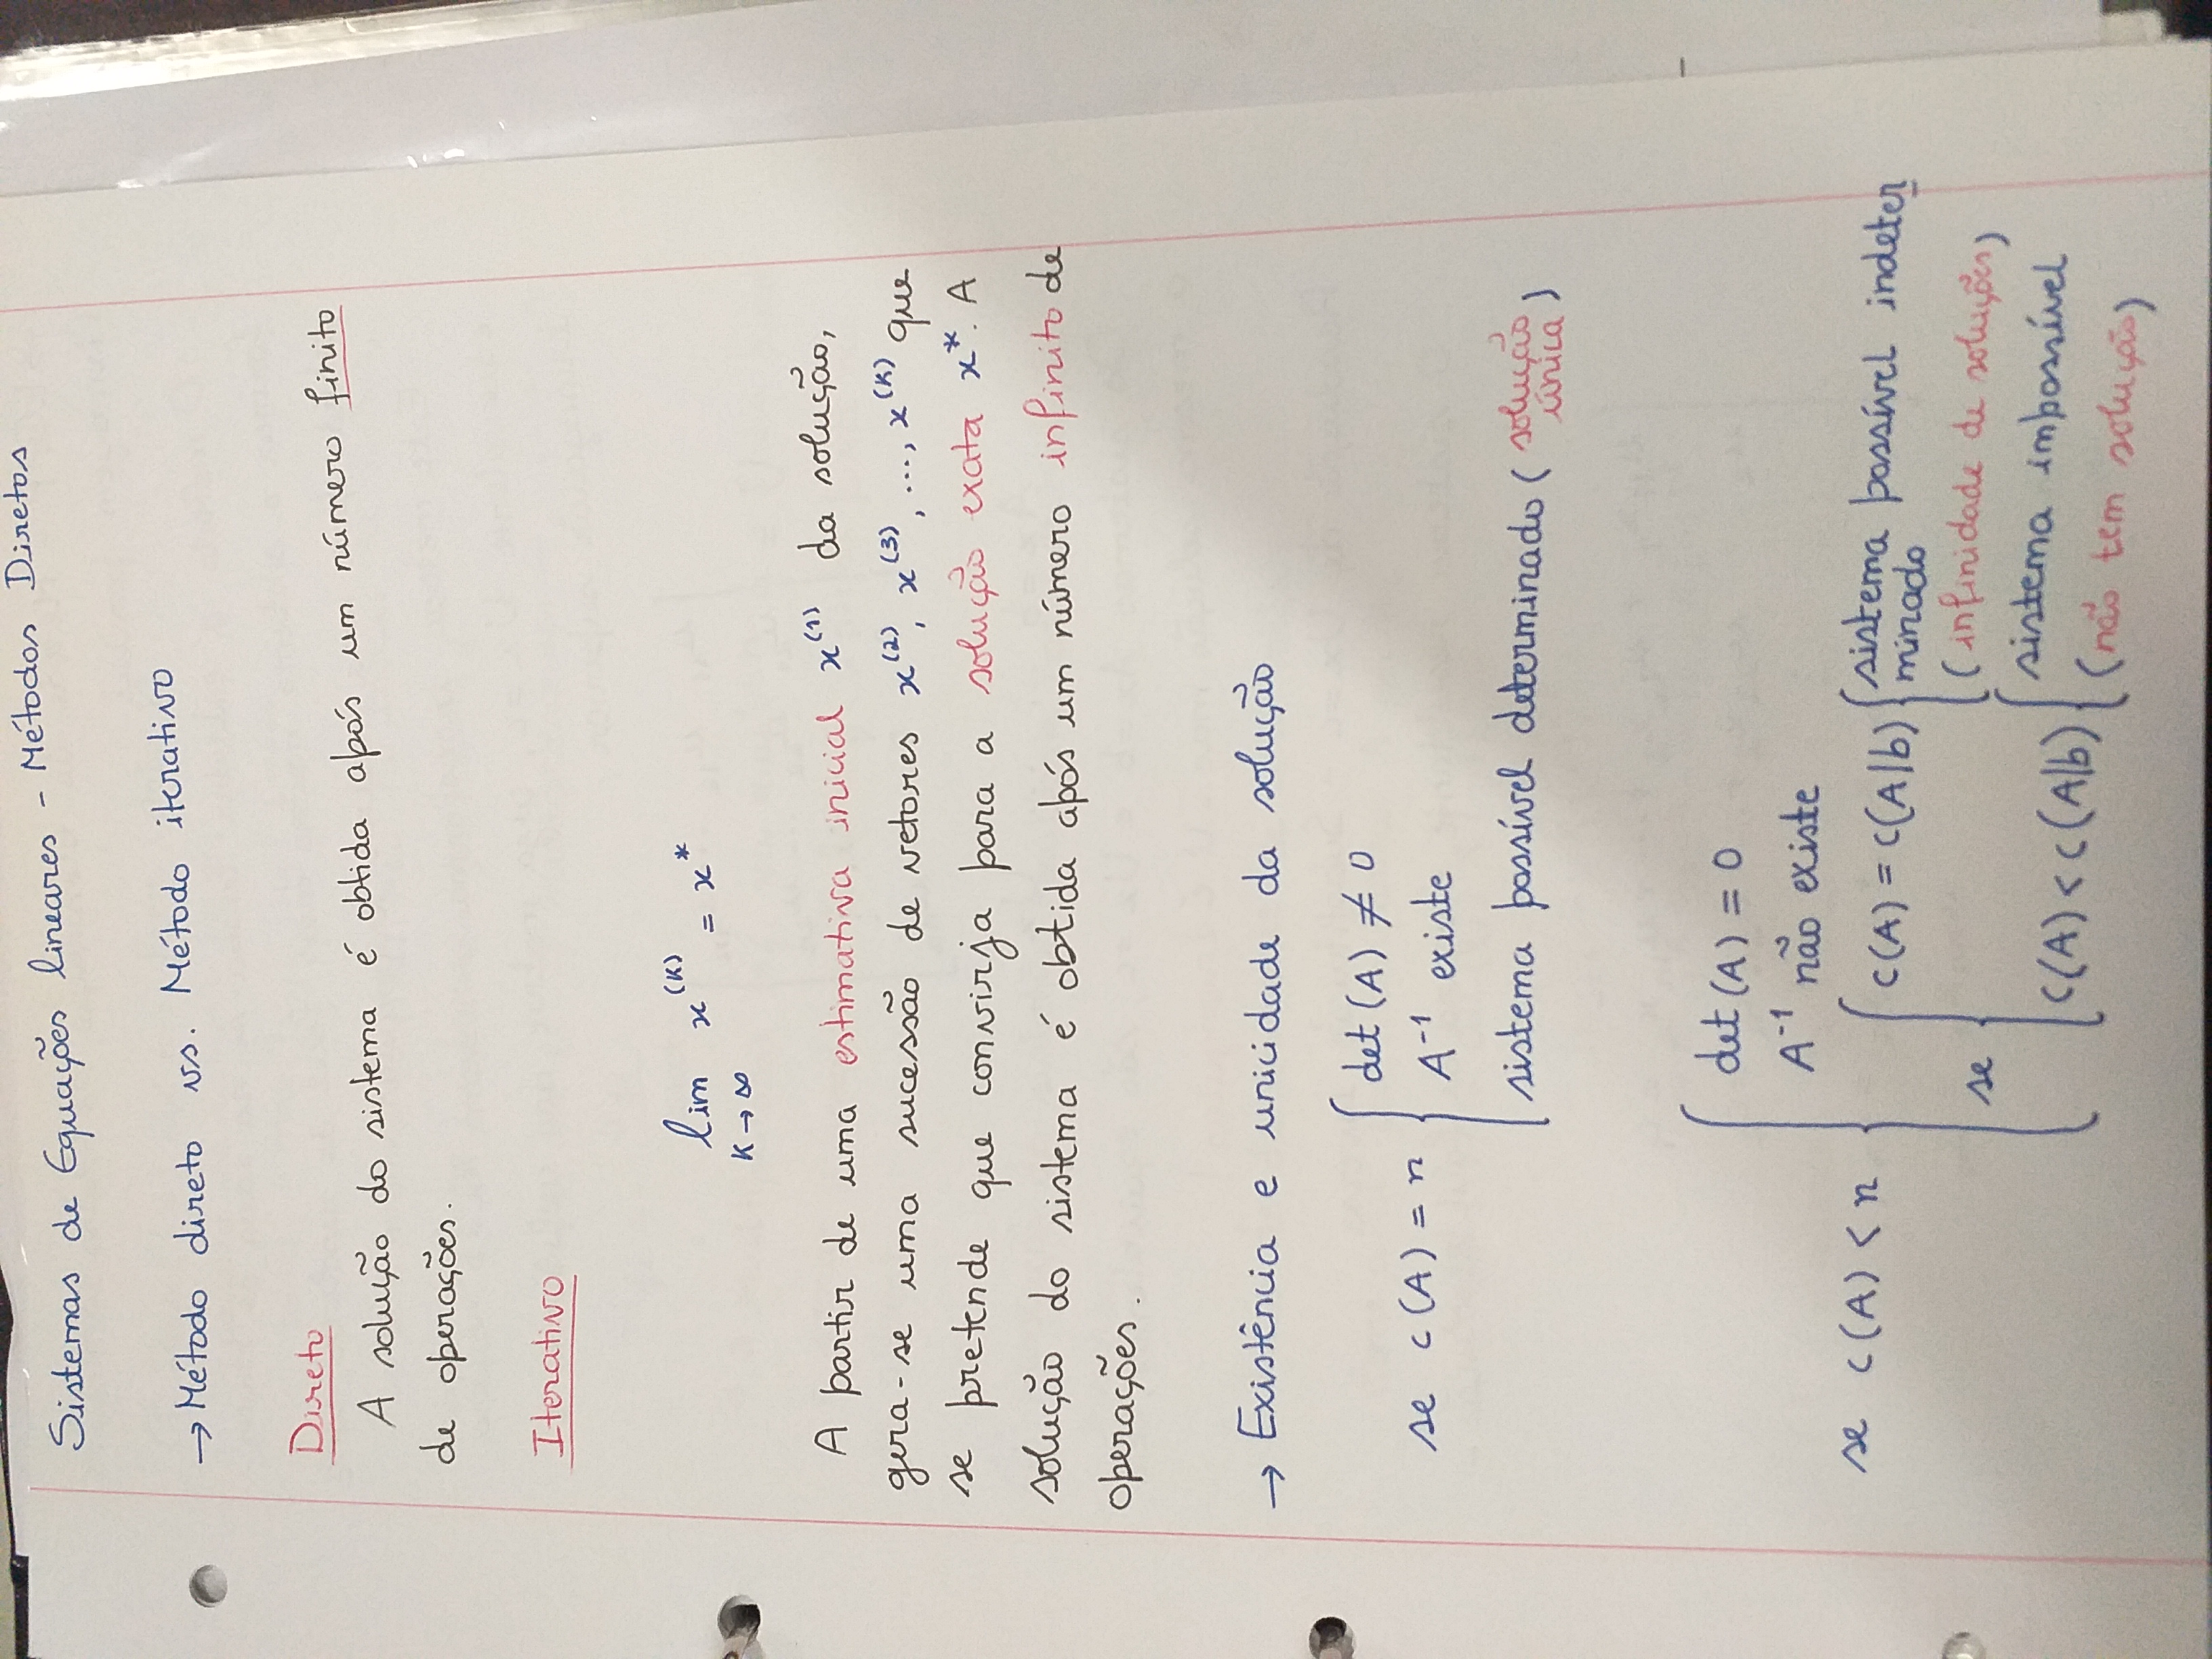 Sistemas de Equações lineares - Métodos Diretos
→ Método direto vs. Método iterativo
Direto
A solução do sistema é obtida após um número finito
de operações.
Iterativo
lim x^(K) = x*
K → ∞
A partir de uma estimativa inicial x^(1) da solução,
gera-se uma sucessão de vetores x^(2), x^(3), ..., x^(K) que
se pretende que convirja para a solução exata x*. A
solução do sistema é obtida após um número infinito de
operações.
→ Existência e unicidade da solução
det (A) ≠ 0
se c(A) = n
A⁻¹ existe
sistema possível determinado (solução
única)
det (A) = 0
A⁻¹ não existe
se c(A) < n
c(A) = c(A|b) sistema possível indeter
minado
(infinidade de soluções)
se
c(A) < c(A|b) sistema impossível
(não tem solução)